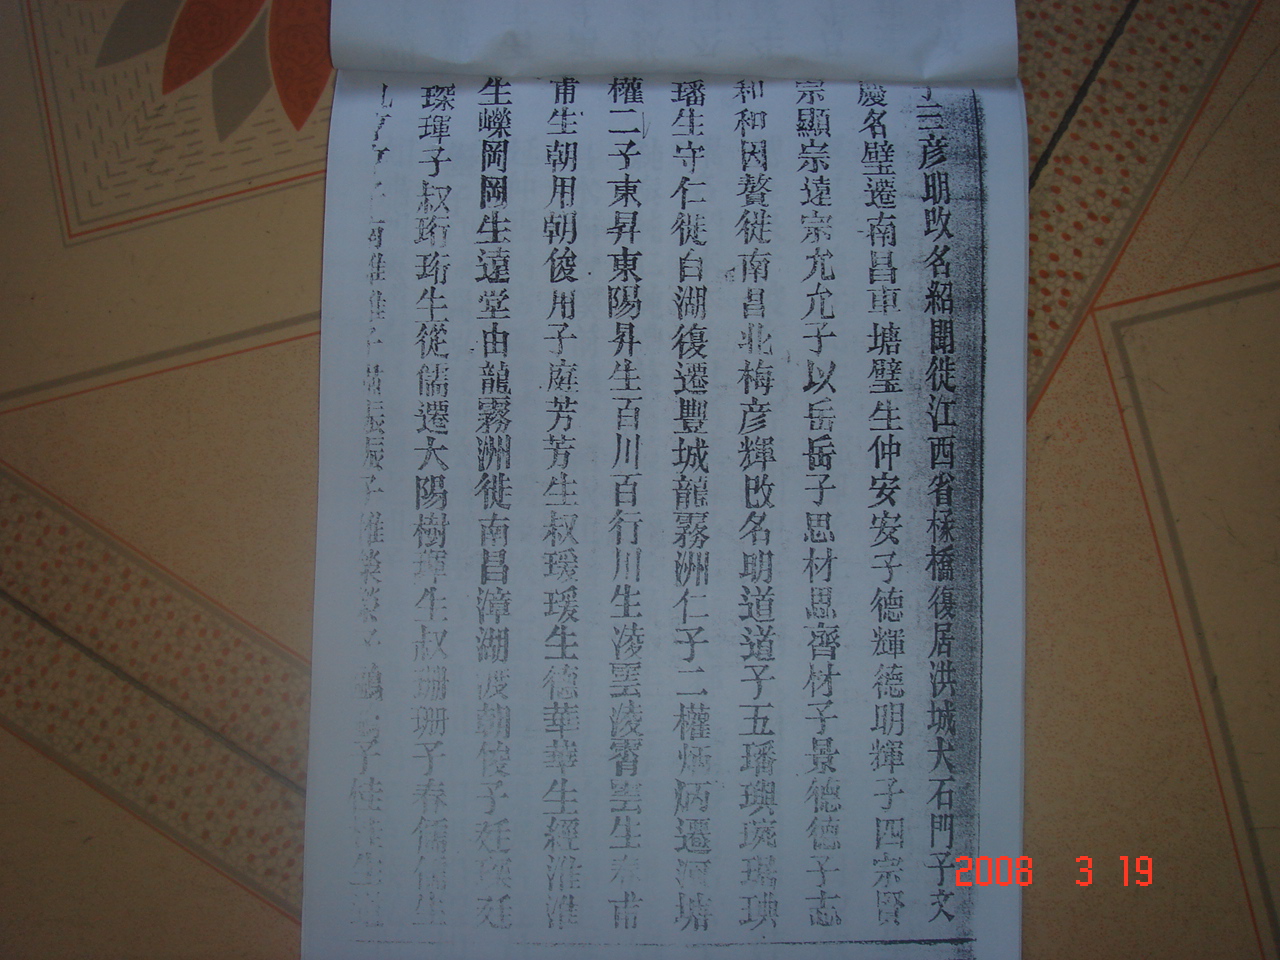 三彦明改名紹聞徙江西省桥橋復居洪城大石門子文
慶名璧遷南昌車塘璧生仲安安子德輝德明輝子四宗賢
宗顯宗遠宗允允子以岳岳子思材思齊材子景德德子志
和和因贅徙南昌北梅彦輝改名明道道子五璠璵琬璐琠
璠生守仁徙白湖復遷豐城龍霧洲仁子二權炳炳遷河塘
權二子東昇東陽昇生百川百行川生凌雲凌霄雲生春甫
甫生朝用朝俊用子庭芳芳生叔瑗瑗生德華華生經淮淮
生嶸岡岡生遠堂由龍霧洲徙南昌漳湖渡朝俊子廷琛廷
琛琿子叔珩珩生從儒遷大陽樹琿生叔珊珊子春儒儒生
2008 3 19